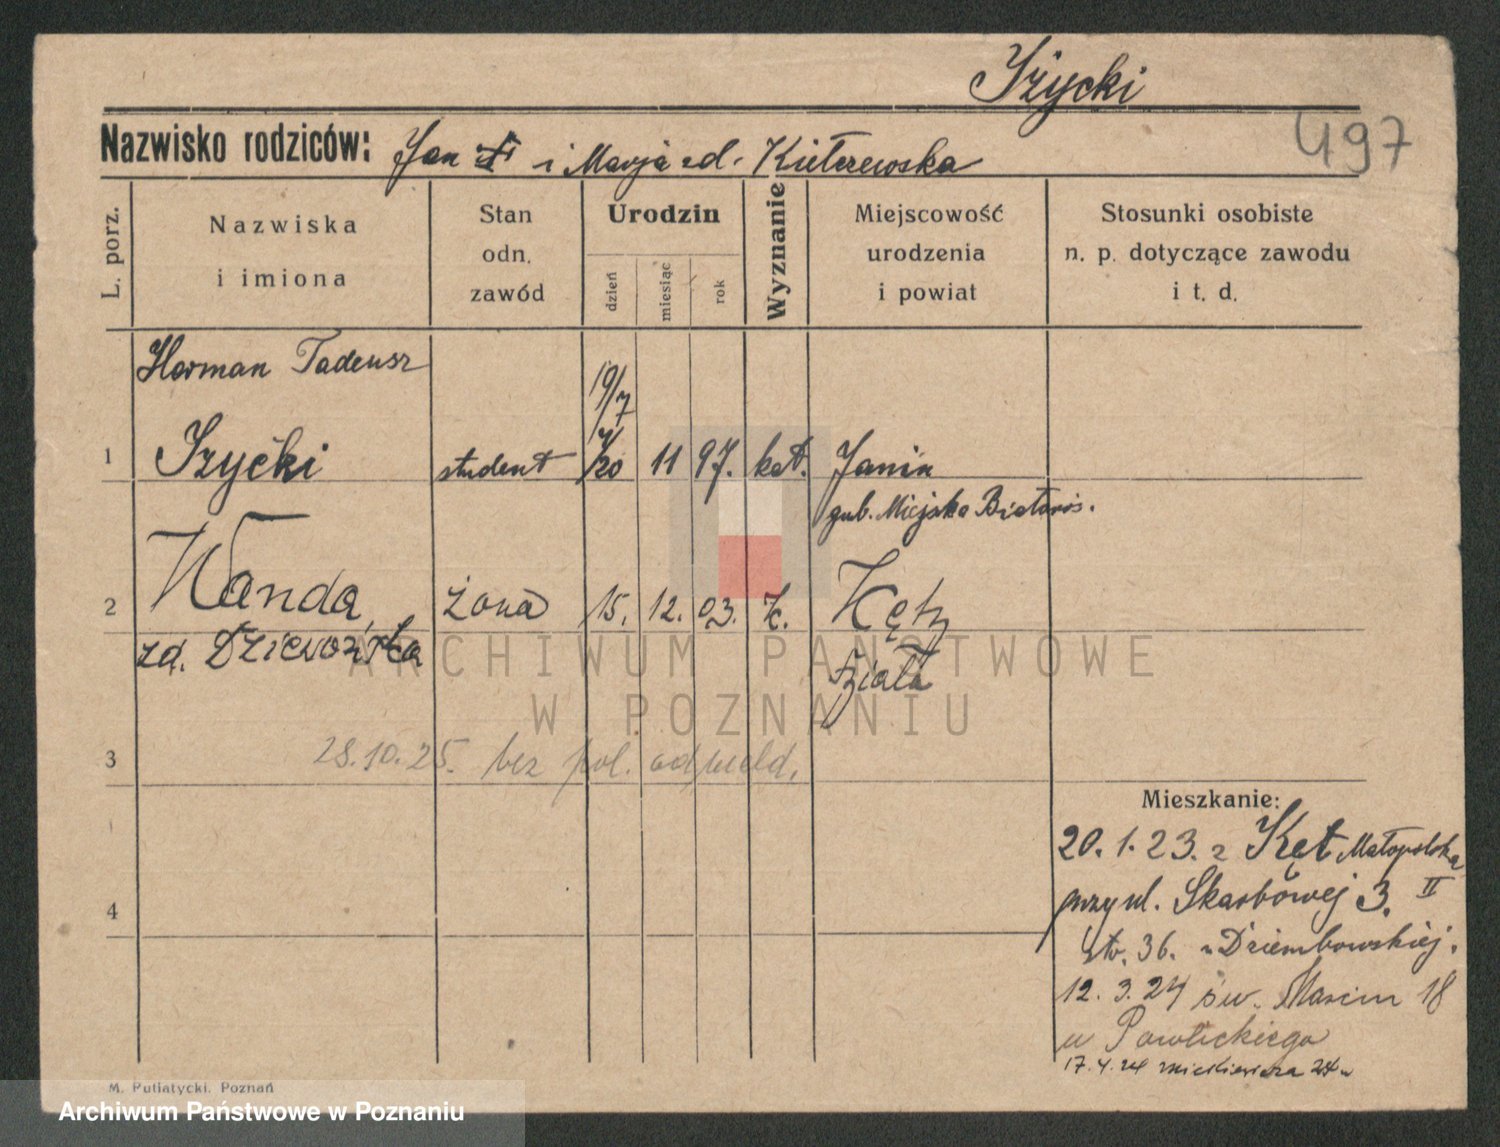 Iżycki
497
Nazwisko rodziców: Jan i Marja zd. Kiełczewska
L. porz.
Nazwiska i imiona
Stan odn. zawód
Urodzin
dzień miesiąc rok
Wyznanie
Miejscowość urodzenia i powiat
Stosunki osobiste n. p. dotyczące zawodu i t. d.
Herman Tadeusz
19/7
1 Iżycki student /20 11 97. kat. Janin
gub. Miejska
2 Wanda żona 15. 12. 03. k. Kęty
zd. Biała
3 28.10.25. bez pol. odmeld.
Mieszkanie:
20.1.23. z Kęt Małopolska
przy ul. Skarbowej 3. II
4
36. u Dziembowskiej.
12.3.24 św. Marcin 18
u Pawlickiego
17.4.24 Mickiewicza 24
M. Putiatycki, Poznań
ARCHIWUM PAŃSTWOWE
W POZNANIU
Archiwum Państwowe w Poznaniu